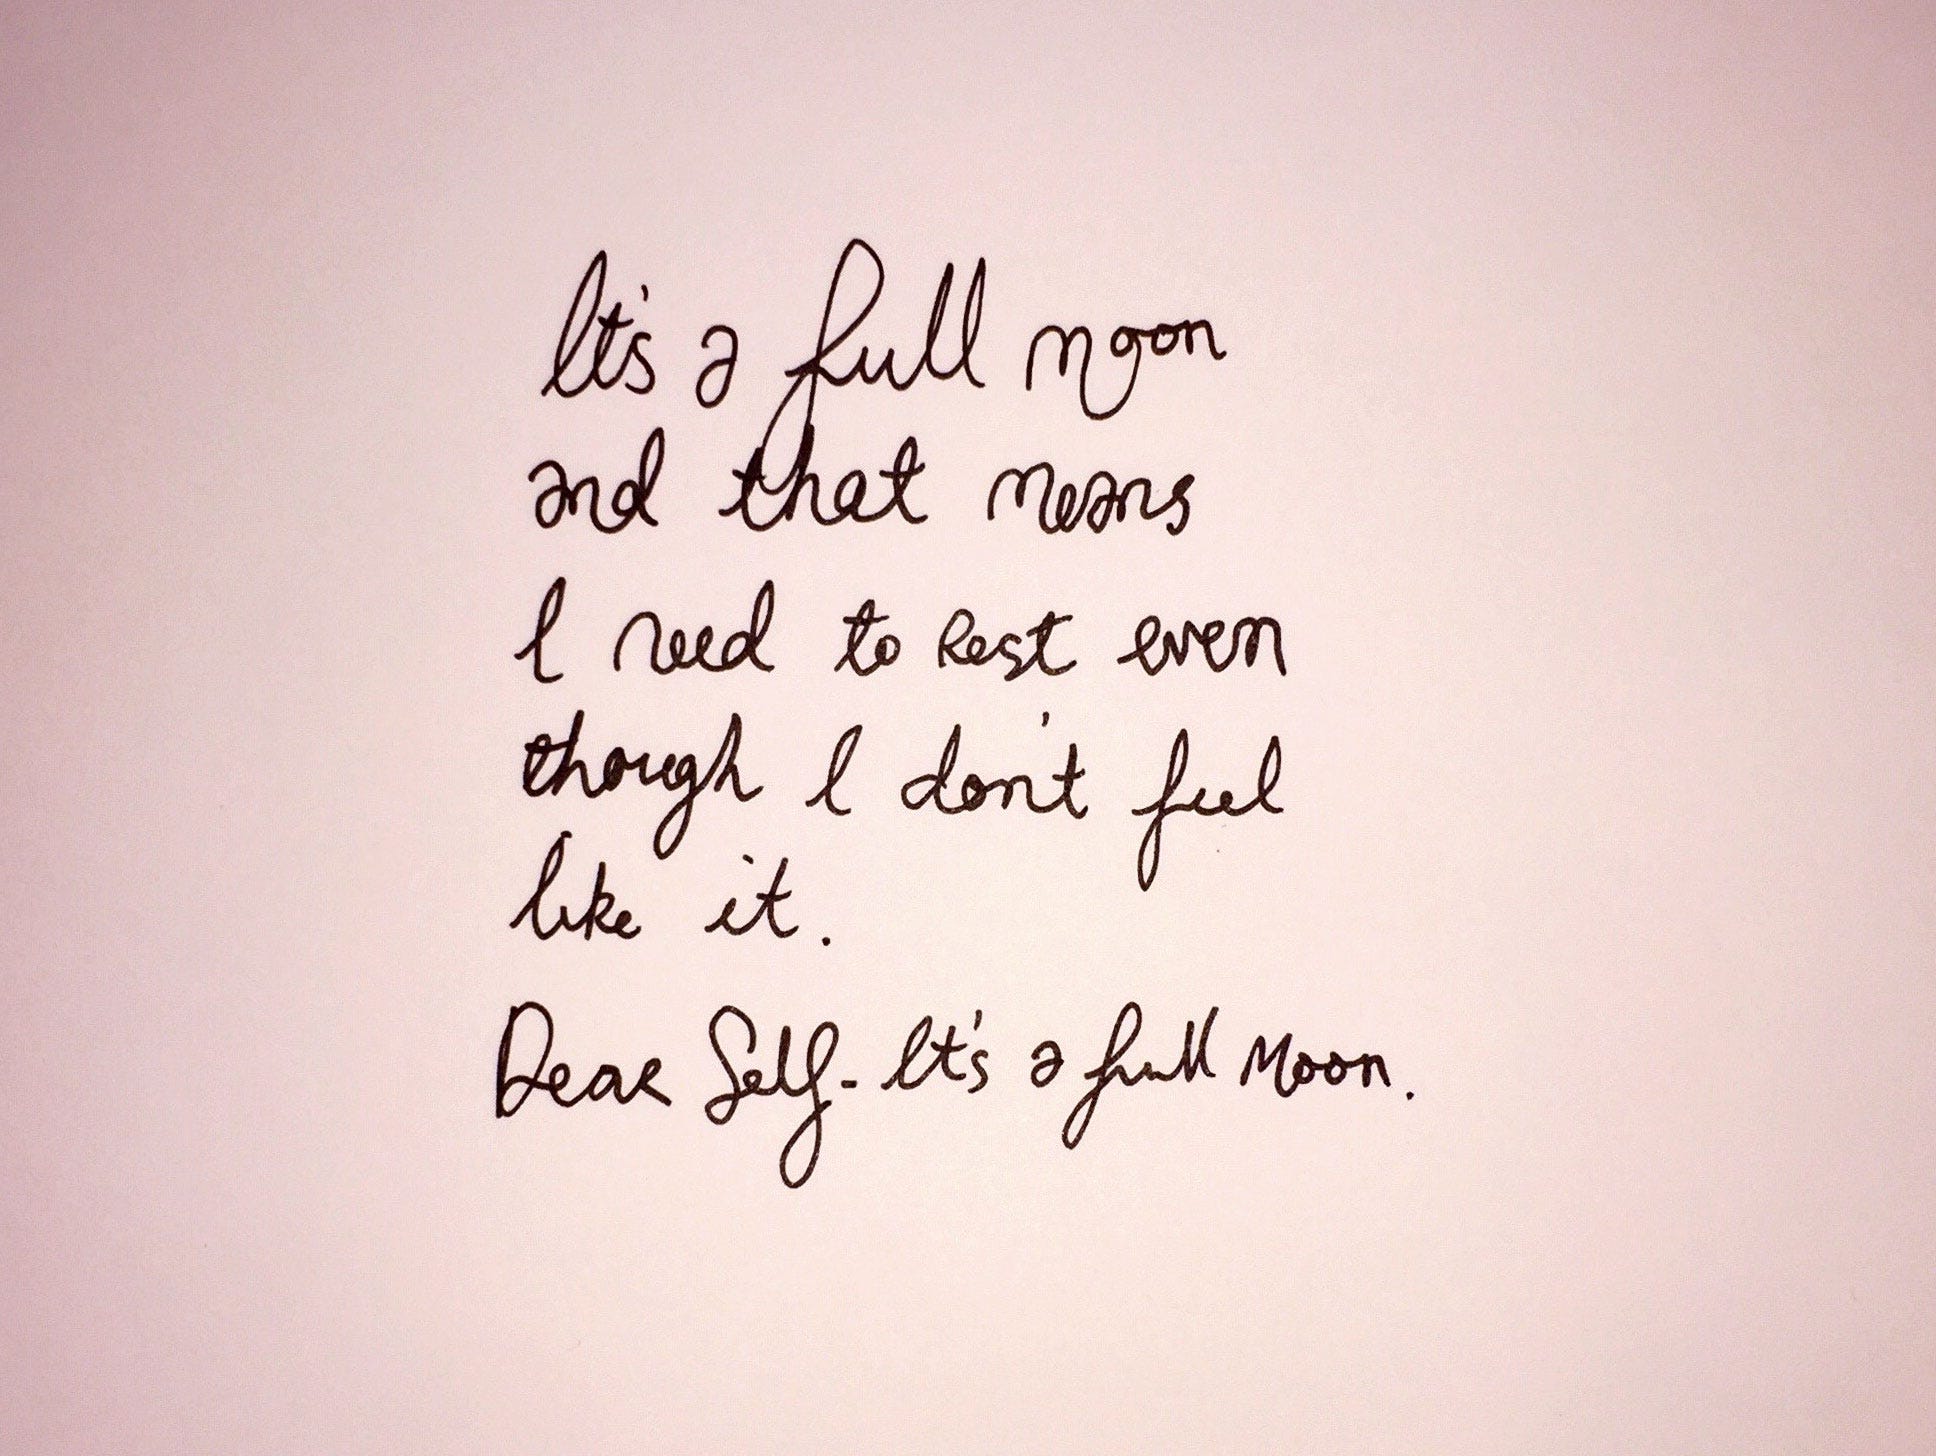 It's a full moon
and that means
I need to Rest even
though I don't feel
like it.
Dear Self - It's a full Moon.